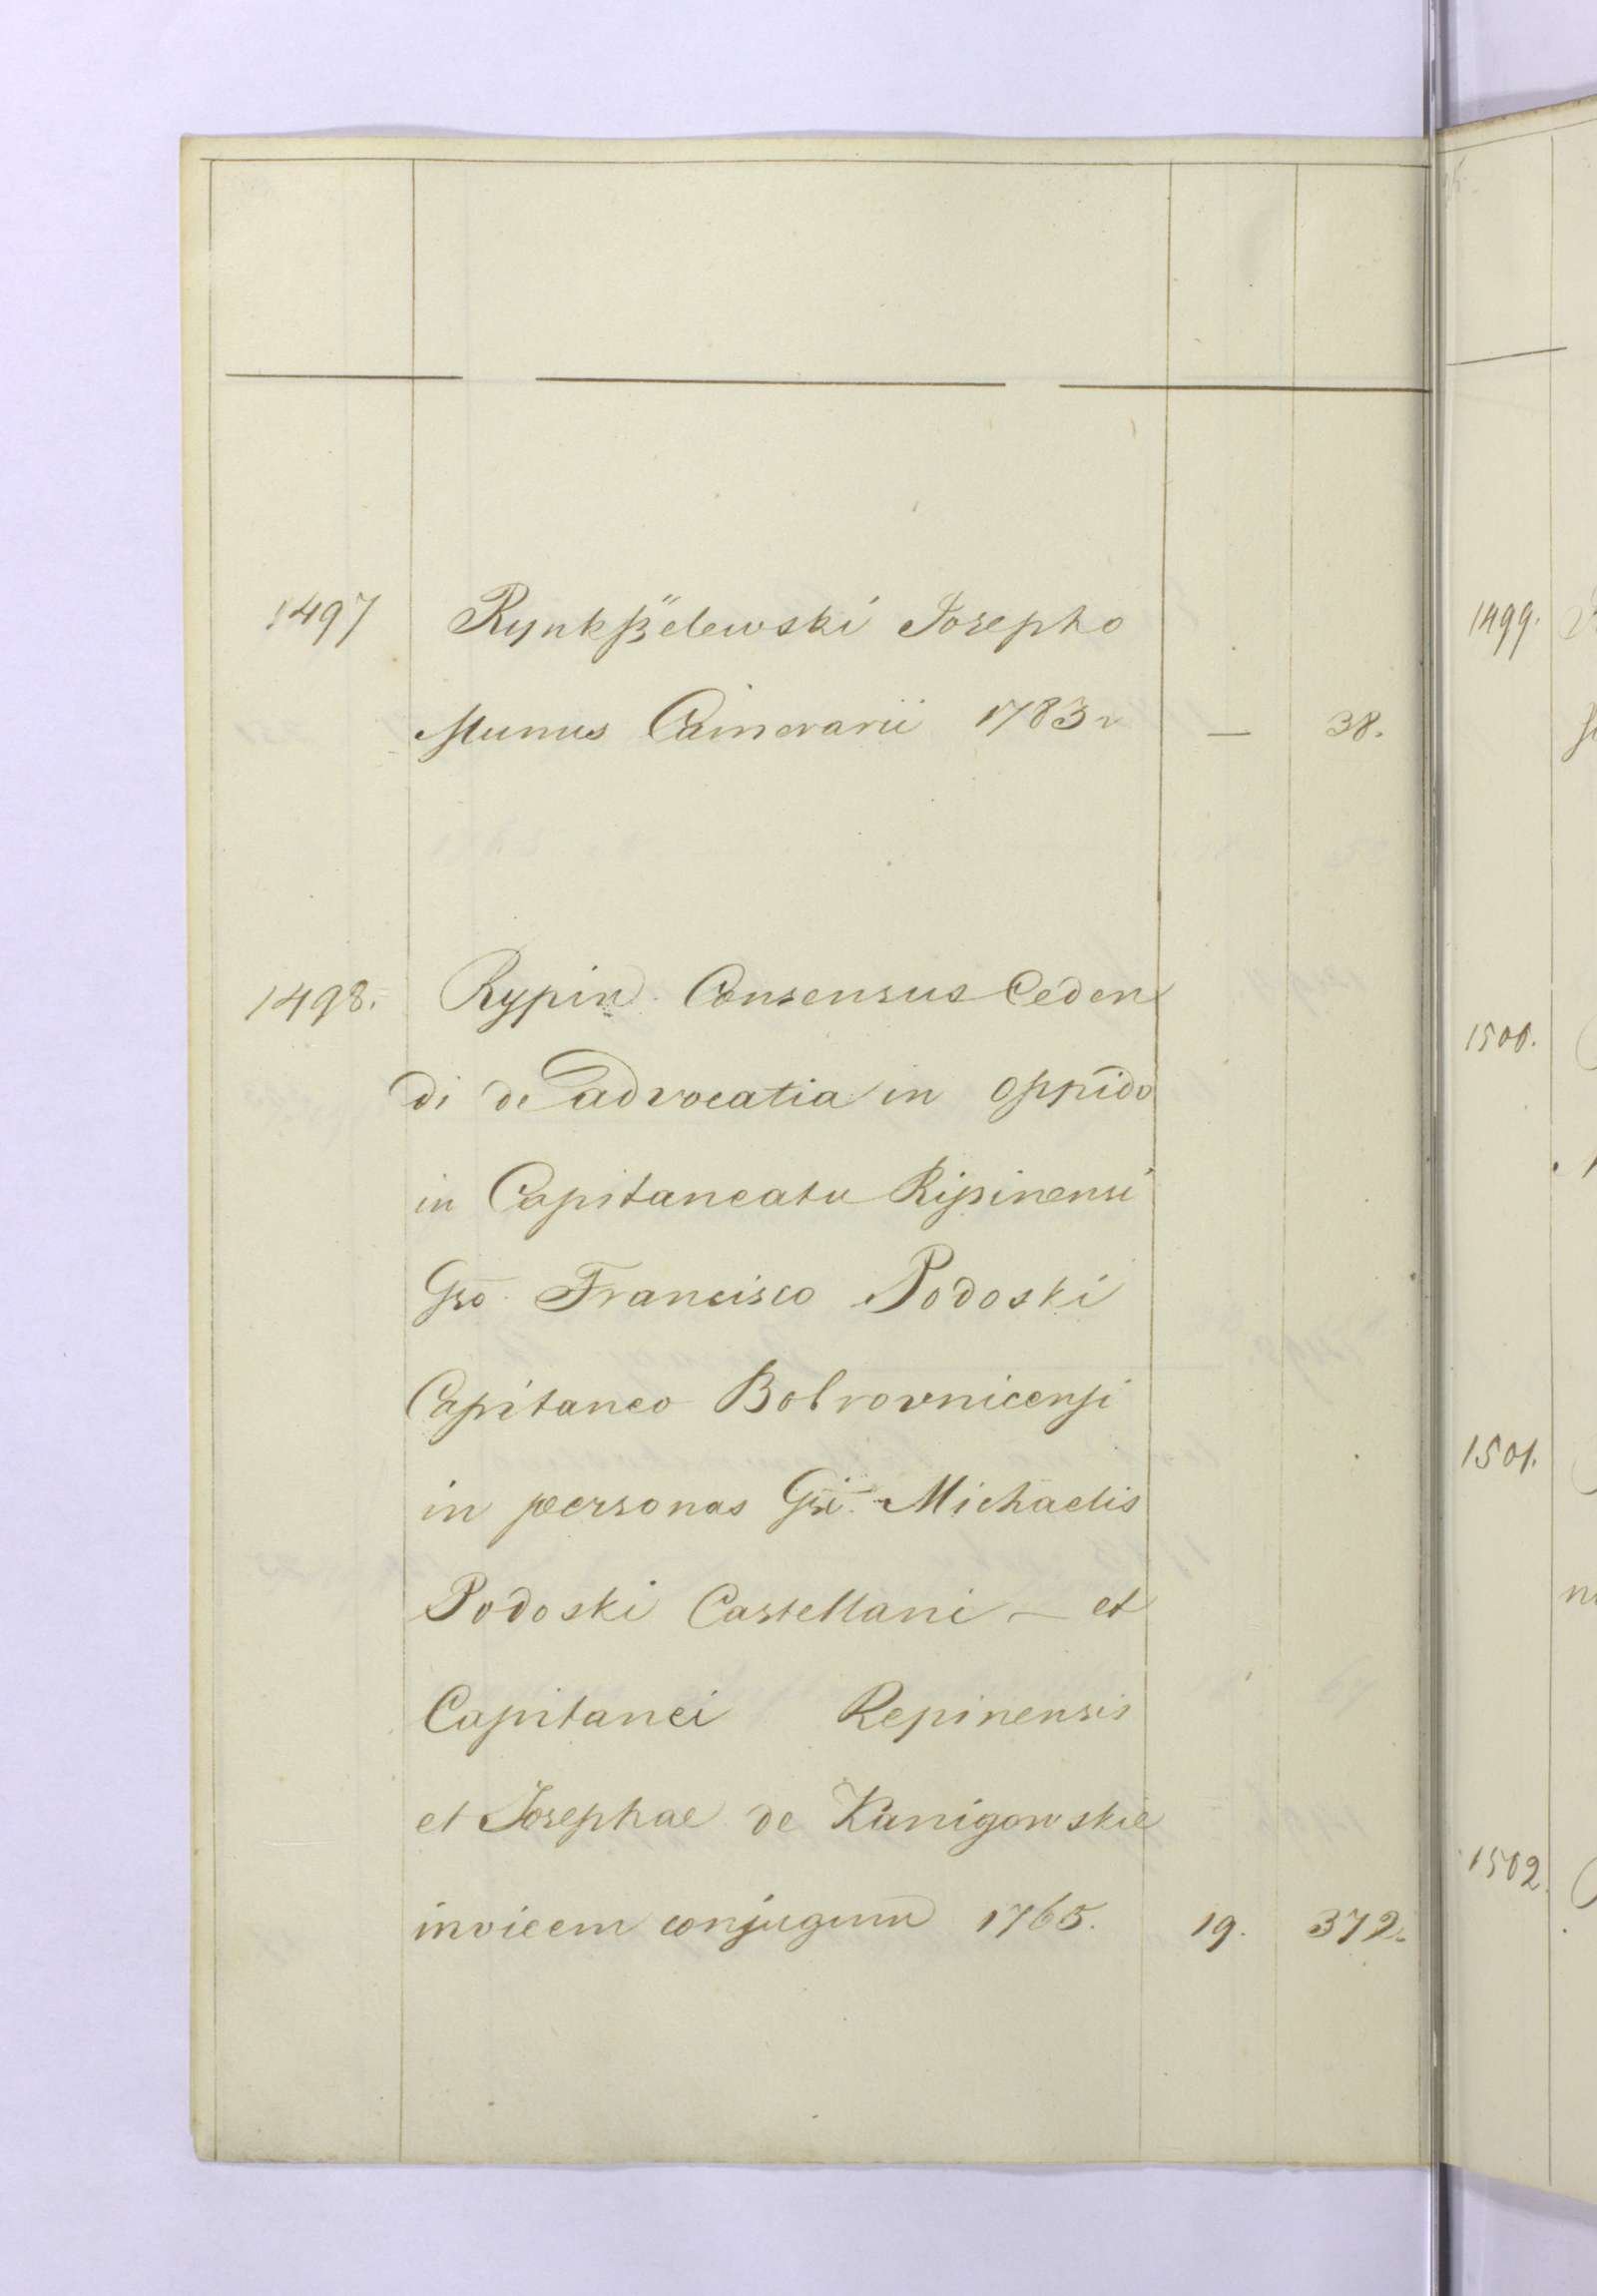 1497 Rynkßelewski Josepho
Munus Camerarii 1783 r — 38.
1498. Rypin Consensus Ceden
di de advocatia in oppido
in Capitaneatu Ripinensi
Gso Francisco Podoski
Capitaneo Bobrovnicensi
in personas Gsi Michaelis
Podoski Castellani — et
Capitanei Repinensis
et Josephae de Kanigowskie
invicem conjugum 1765. 19. 372.
1499.
1500.
1501.
1502.